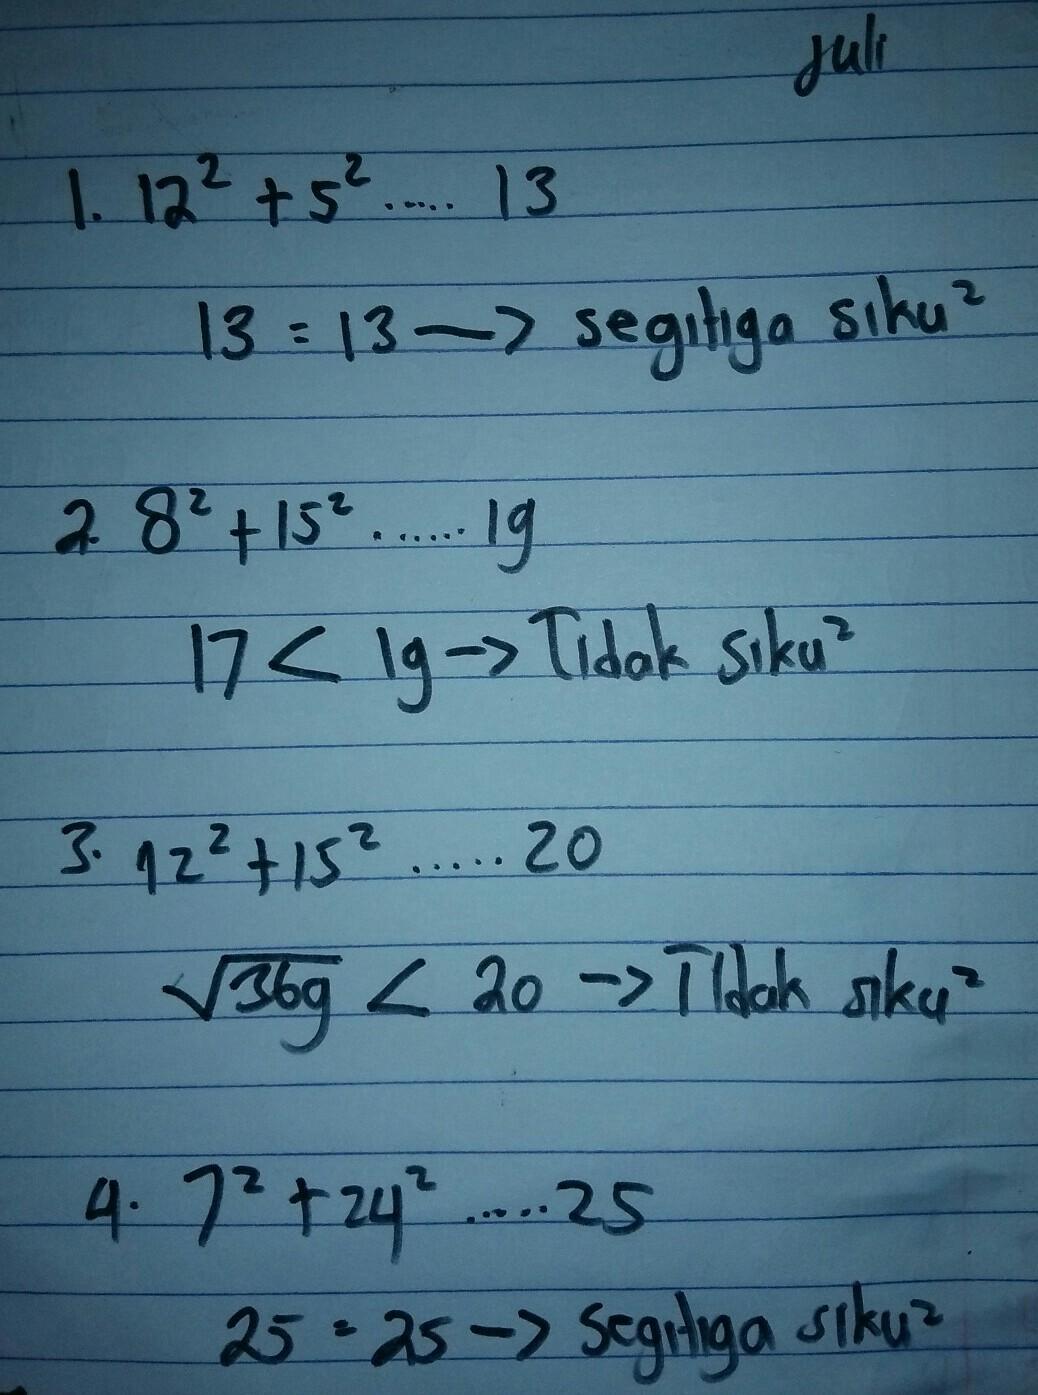 juli
1. 12² + 5² ..... 13
13 = 13 —> segitiga siku²
2. 8² + 15² ...... 19
17 < 19 —> Tidak siku²
3. 12² + 15² ..... 20
√369 < 20 —> Tidak siku²
4. 7² + 24² ..... 25
25 = 25 —> segitiga siku²